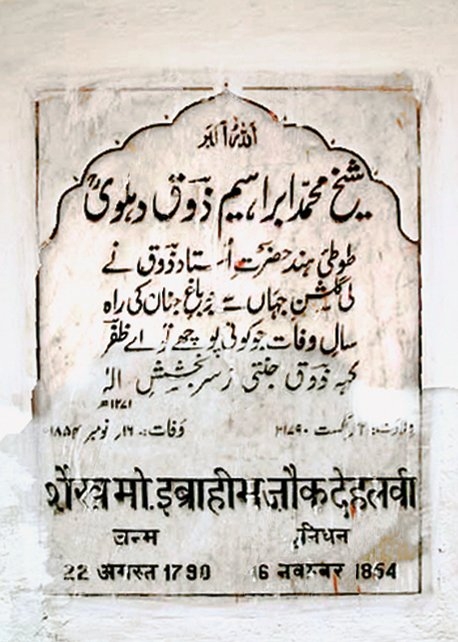 اللہ اکبر
شیخ محمد ابراہیم ذوق دہلوی
طوطیٔ ہند حضرت اُستاد ذوق نے
لی گلشنِ جہاں سے باغِ جناں کی راہ
سالِ وفات جو کوئی پوچھے تو اے ظفر
کہہ ذوق جنتی بخششِ الٰہ
۱۲۷۱ھ
اگست ۱۷۹۰ وفات: ۱۶ نومبر ۱۸۵۴
शेख मो. इब्राहीम जौक देहलवी
जन्म निधन
22 अगस्त 1790 16 नवम्बर 1854